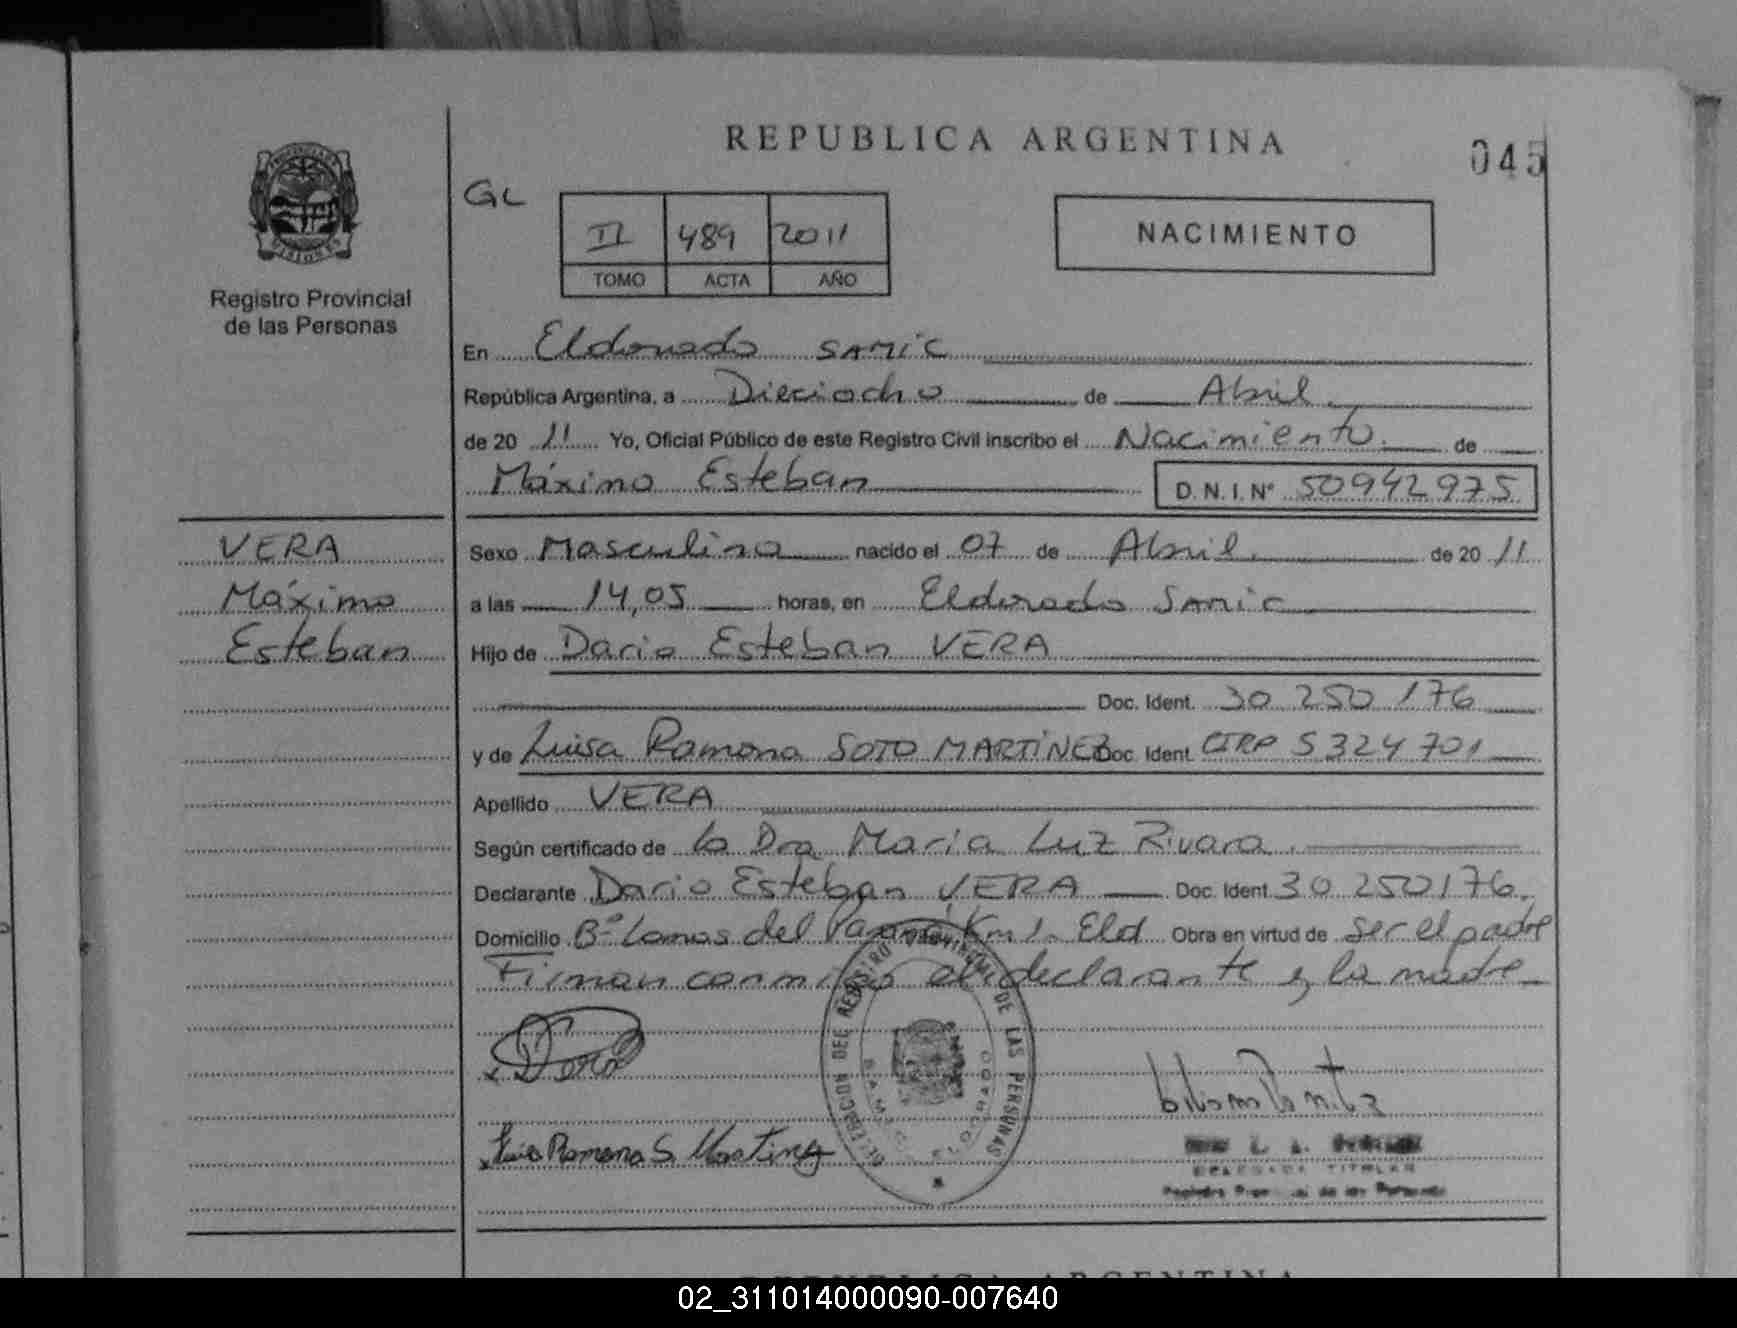 REPUBLICA ARGENTINA
045
GL
II 489 2011
TOMO ACTA AÑO
NACIMIENTO
Registro Provincial
de las Personas
En Eldorado SAMIC
República Argentina, a Dieciocho de Abril
de 20 11 Yo, Oficial Público de este Registro Civil inscribo el Nacimiento de
Máximo Esteban D.N.I.Nº 50942975
VERA
Máximo
Esteban
Sexo Masculino nacido el 07 de Abril de 20 11
a las 14,05 horas, en Eldorado Samic
Hijo de Dario Esteban VERA
Doc. Ident. 30 250 176
y de Luisa Ramona SOTO MARTÍNEZ Doc. Ident. CIRP 5324 701
Apellido VERA
Según certificado de la Dra Maria Luz Rivara
Declarante Dario Esteban VERA Doc. Ident. 30 250176
Domicilio Bº Lomas del Paraná Km 1. Eld Obra en virtud de ser el padre
Firman conmigo el declarante y la madre
DELEGACION DEL REGISTRO DE LAS PERSONAS
SAMIC ELDORADO
Ramona S. Martinez
DELEGADA TITULAR
REPUBLICA ARGENTINA
02_311014000090-007640